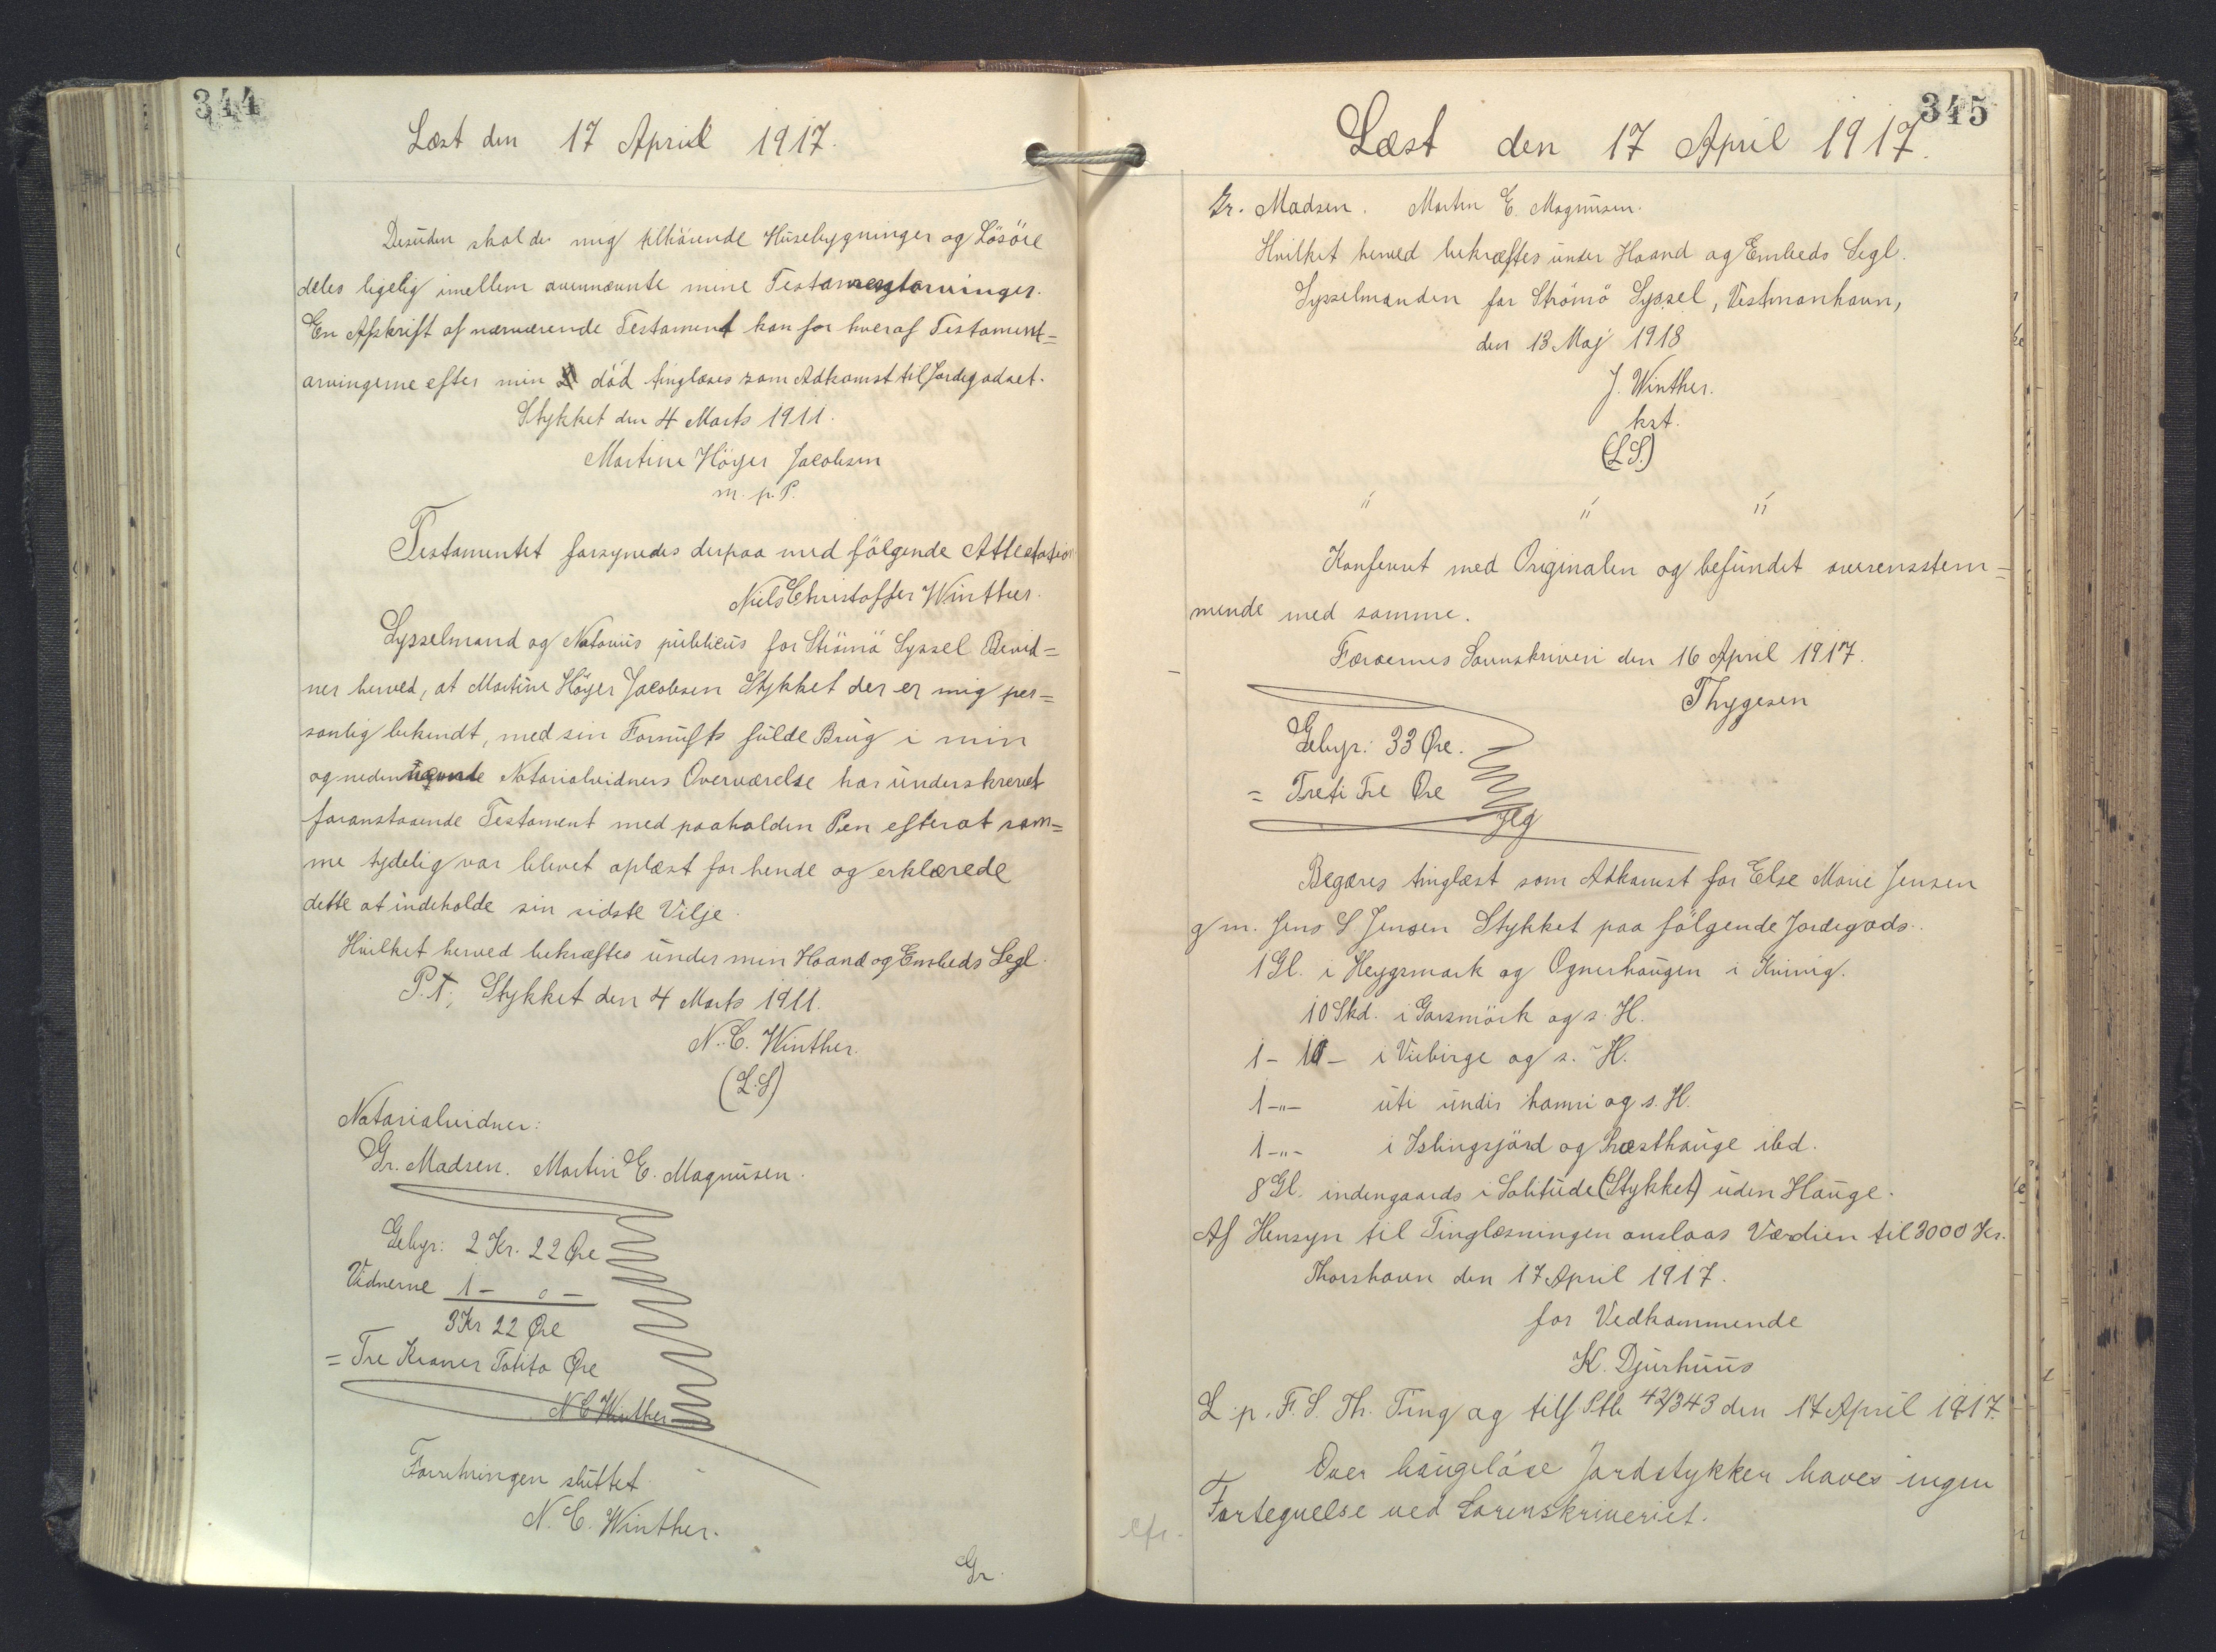 344
Læst den 17 April 1917.
Desuden skal de mig tilhörende Husebygninger og Lösöre
deles ligelig imellem ovennævnte mine Testamentarvinger.
En Afskrift af nærværende Testament kan for hver af Testament=
arvingerne efter min död tinglæses som Adkomst til Jordegodset.
Stykket den 4 Marts 1911.
Martine Höyer Jacobsen
m. p. P.
Testamentet forsynedes derpaa med fölgende Attestation
Niels Christoffer Winther.
Sysselmand og Notarius publicus for Strömö Syssel Bevid=
ner herved, at Martine Höyer Jacobsen Stykket der er mig per=
sonlig bekendt, med sin Fornufts fulde Brug i min
og nedennævnte Notarialvidners Overværelse har underskrevet
foranstaaende Testament med paaholden Pen efterat sam=
me tydelig var blevet oplæst for hende og erklærede
dette at indeholde sin sidste Vilje.
Hvilket herved bekræftes under min Haand og Embeds Segl.
P.T., Stykket den 4 Marts 1911.
N. C. Winther.
(L.S)
Notarialvidner:
Gr. Madsen. Martin E. Magnusen.
Gebyr: 2 Kr. 22 Øre
Vidnerne 1 - 0 -
3 Kr 22 Øre
= Tre Kroner Totito Øre
N C Winther
Forretningen sluttet
N. C. Winther.
Gr.
345
Læst den 17 April 1917.
Gr. Madsen. Martin E. Magnusen.
Hvilket herved bekræftes under Haand og Embeds Segl.
Sysselmanden for Strömö Syssel, Vestmanhavn,
den 13 Maj 1918
J. Winther.
kst.
(L S.)
" " "
Konfereret med Originalen og befundet overensstem=
mende med samme.
Færøernes Sorenskriveri den 16 April 1917.
Thygesen
Gebyr: 33 Øre.
= Treti Tre Øre
Begæres tinglæst som Adkomst for Else Marie Jensen
g m. Jens S Jensen Stykket paa fölgende Jordegods.
1 Gl. i Heygsmark og Ognerhaugen i Kvivig.
10 Skd. i Garsmörk og s. H.
1 - 10 - i Viebirge og s. H.
1 - " - uti undir hamri og s. H.
1 - " - i Islingsjörd og Præsthauge ibd.
8 Gl. indengaards i Solitude (Stykket) uden Hauge.
Af Hensyn til Tinglæsningen anslaas Værdien til 3000 Kr.
Thorshavn den 17 April 1917.
for Vedkommende
K. Djurhuus
L. p. F. S. Th. Ting og tilf Ptb 42/343 den 17 April 1917.
Over haugelöse Jordstykker haves ingen
Fortegnelse ved Sorenskriveriet.
cfr.